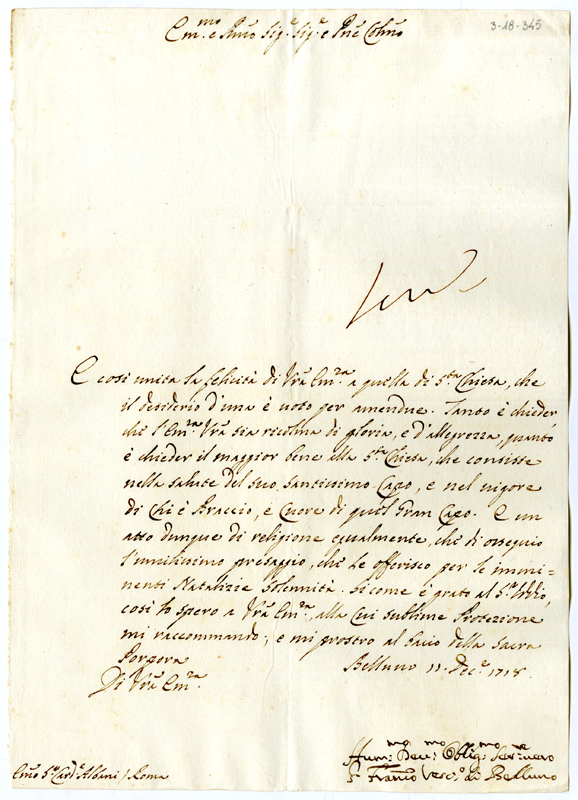 3-18-345
Em.mo e Rũo Sig.e Sig.e e Pñe Colñõ
E così unita la felicità di Vrã Em.za a quella di S.ta Chiesa, che
il desiderio d'una è voto per amendue. Tanto è chieder
che l'Em.za Vrã sia ricolma di gloria, e d'allegrezza, quanto
è chieder il maggior bene alla S.ta Chiesa, che consiste
nella salute del suo Santissimo Capo, e nel vigore
di Chi è Braccio, e Cuore di quel Gran Capo. E un
atto dunque di religione egualmente, che di ossequio
l'umilissimo presaggio, che Le offerisco per le immi=
nenti Natalizie Solennità. Si come è grato al S.r Iddio,
così lo spero a Vrã Em.za, alla Cui sublime Protezione
mi raccommando; e mi prostro al bacio della Sacra
Porpora
Belluno 11. Dec.e 1718.
Di Vrã Em.za
Hum.mo Dev.mo Oblig.mo Ser.re vero
F. Franco Vesc.o di Belluno
Emo S.r Card.e Albani / Roma